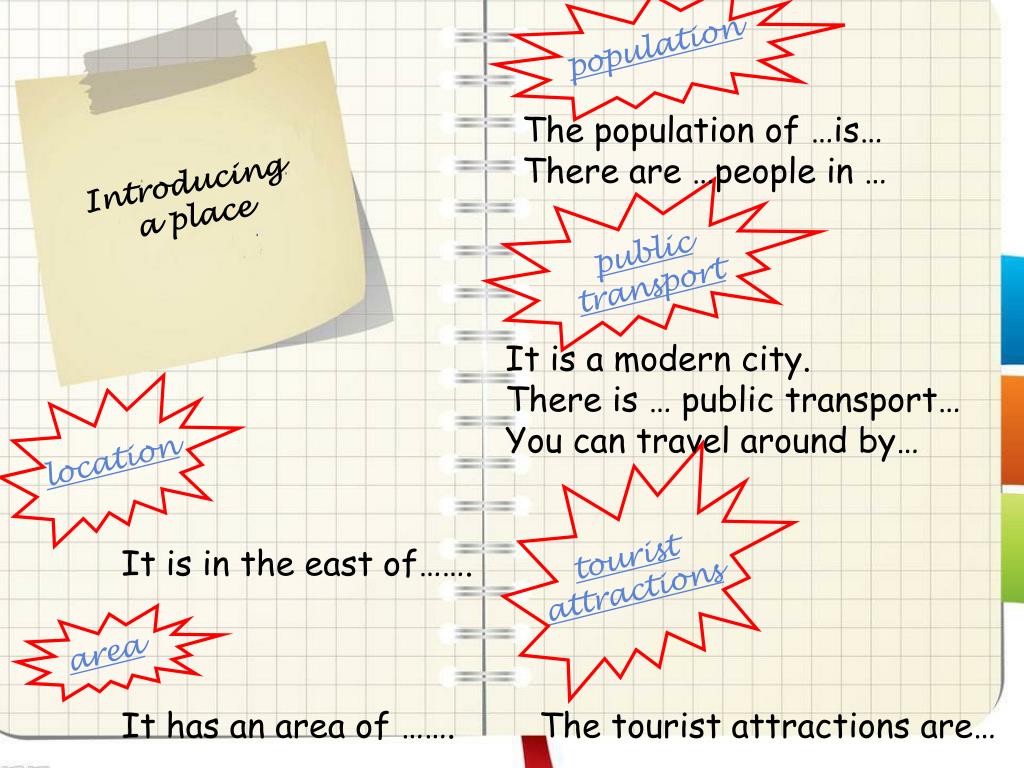 Introducing
a place
location
It is in the east of…….
area
It has an area of …….
population
The population of …is…
There are …people in …
public
transport
It is a modern city.
There is … public transport…
You can travel around by…
tourist
attractions
The tourist attractions are…